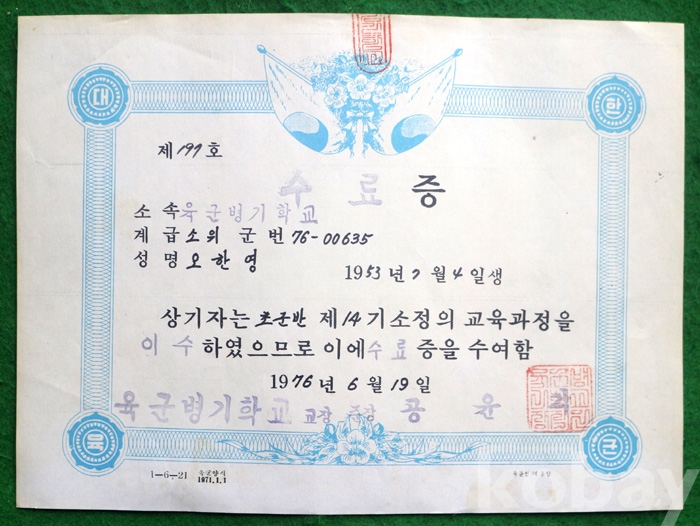 대 한
제 197 호
수 료 증
소 속 육 군 병 기 학 교
계 급 소 위 군 번 76-00635
성 명 오 한 영
1953 년 7 월 4 일생
상기자는 초군반 제 14 기소정의 교육과정을
이 수 하였으므로 이에 수 료 증을 수여함
1976 년 6 월 19 일
육 군 병 기 학 교 교장 공 윤
육 군
1-6-21 육군양식
1971.1.1
kobay